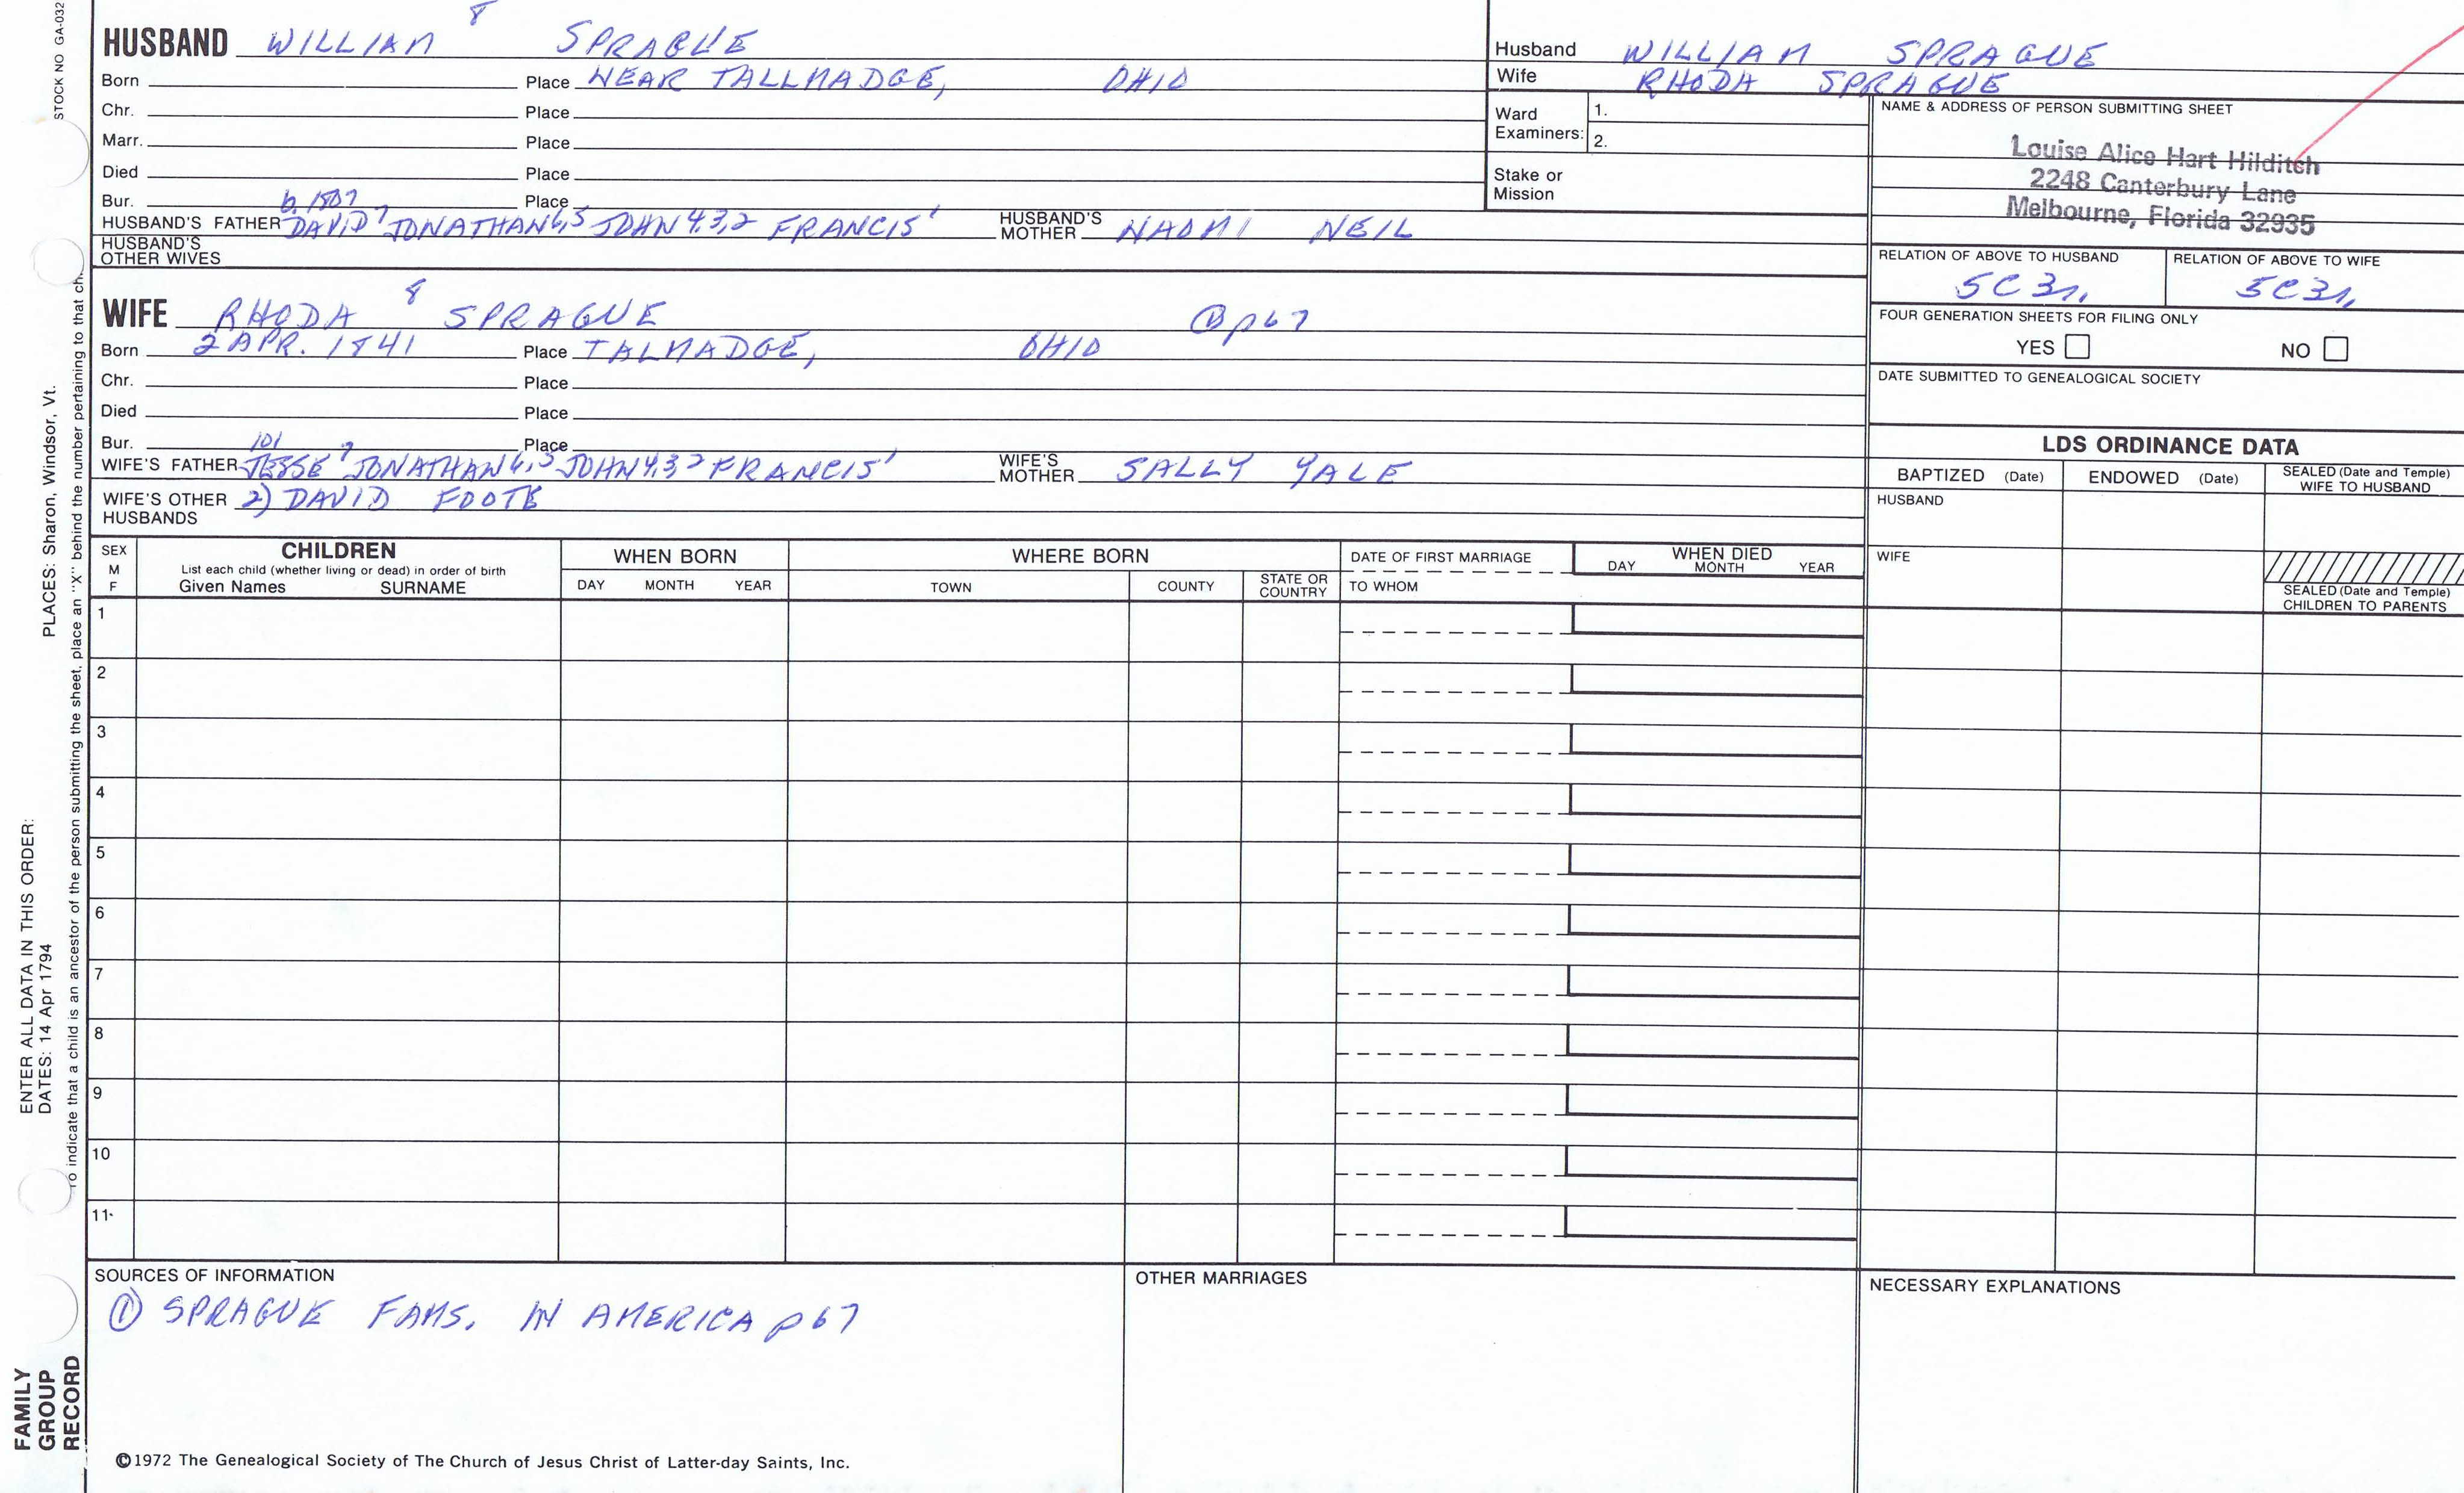 STOCK NO GA-032
PLACES: Sharon, Windsor, Vt.
ENTER ALL DATA IN THIS ORDER:
DATES: 14 Apr 1794
To indicate that a child is an ancestor of the person submitting the sheet, place an "X" behind the number pertaining to that ch
FAMILY
GROUP
RECORD
HUSBAND WILLIAM 8 SPRAGUE
Born Place NEAR TALLMADGE, OHIO
Chr. Place
Marr. Place
Died Place
Bur. Place
b. 1807
HUSBAND'S FATHER DAVID 7 JONATHAN 6,5 JOHN 4,3,2 FRANCIS 1 HUSBAND'S MOTHER NAOMI NEIL
HUSBAND'S OTHER WIVES
WIFE RHODA 8 SPRAGUE ① p67
Born 2 APR. 1841 Place TALMADGE, OHIO
Chr. Place
Died Place
Bur. Place
101
WIFE'S FATHER JESSE 7 JONATHAN 6,5 JOHN 4,3,2 FRANCIS 1 WIFE'S MOTHER SALLY YALE
WIFE'S OTHER HUSBANDS 2) DAVID FOOTE
Husband WILLIAM SPRAGUE
Wife RHODA SPRAGUE
Ward Examiners: 1.
2.
Stake or Mission
NAME & ADDRESS OF PERSON SUBMITTING SHEET
Louise Alice Hart Hilditch
2248 Canterbury Lane
Melbourne, Florida 32935
RELATION OF ABOVE TO HUSBAND RELATION OF ABOVE TO WIFE
5C3r. 5C3r.
FOUR GENERATION SHEETS FOR FILING ONLY
YES NO
DATE SUBMITTED TO GENEALOGICAL SOCIETY
LDS ORDINANCE DATA
BAPTIZED (Date) ENDOWED (Date) SEALED (Date and Temple) WIFE TO HUSBAND
HUSBAND
WIFE
SEALED (Date and Temple)
CHILDREN TO PARENTS
SEX M F CHILDREN WHEN BORN WHERE BORN DATE OF FIRST MARRIAGE WHEN DIED
List each child (whether living or dead) in order of birth
Given Names SURNAME DAY MONTH YEAR TOWN COUNTY STATE OR COUNTRY TO WHOM DAY MONTH YEAR
1
2
3
4
5
6
7
8
9
10
11
SOURCES OF INFORMATION OTHER MARRIAGES NECESSARY EXPLANATIONS
① SPRAGUE FAMS. IN AMERICA p 67
©1972 The Genealogical Society of The Church of Jesus Christ of Latter-day Saints, Inc.